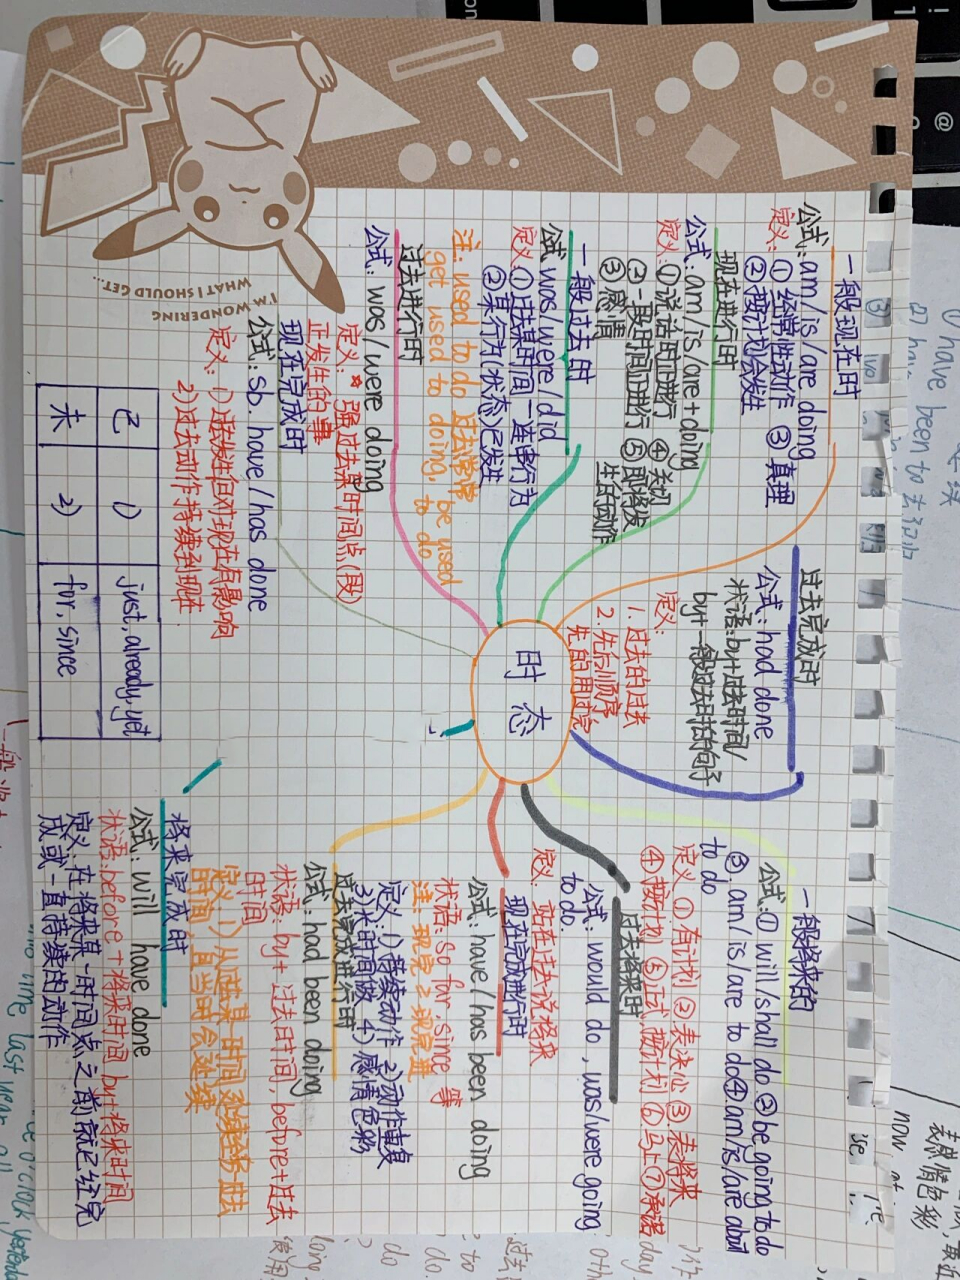 时态
一般现在时
公式: am/is/are doing
定义: ① 经常性动作 ③ 真理
② 按计划会发生
现在进行时
公式: am/is/are+doing
定义: ①说话时正进行 ④
②一段时间正进行 ⑤即将发
③感情 生的动作
一般过去时
公式 was/were/did
定义: ①过去某时间一连串行为
②某行为(状态)已发生
注: used to do 过去常常 be used
get used to doing, to do
过去进行时
公式: was/were doing
定义: * 强过去某时间点(段)
正发生的事
现在完成时
公式: sb. have/has done
定义: 1)已发生但对现在有影响
2)过去动作持续到现在
已 1) just, already, yet
未 2) for, since
过去完成时
公式: had done
状语: by+过去时间/
by+一般过去时的句子
定义:
1. 过去的过去
2. 先后顺序
先的用过完
一般将来时
公式: ① will/shall do ② be going to do
③ am/is/are to do ④ am/is/are about
to do
定义 ① 有计划 ② 表决心 ③ 表将来
④ 按计划 ⑤ 正式,按计划 ⑥ 马上 ⑦ 承诺
过去将来时
公式: would do, was/were going
to do.
定义: 站在过去说将来
现在完成进行时
公式: have/has been doing
状语: so far, since 等
注: 现完 2 现完进
定义: 1)持续动作 2)动作重复
3)长时间做 4)感情色彩
过去完成进行时
公式: had been doing
状语: by+过去时间, before+过去
时间
定义: 1)从过去某一时间
时间 且当时会延续
将来完成时
公式: will have done
状语: before+将来时间 by+将来时间
定义: 在将来某一时间点之前就已经完
成或一直持续的动作
I'M WONDERING
WHAT I SHOULD GET...
have been to
表感情色彩
now